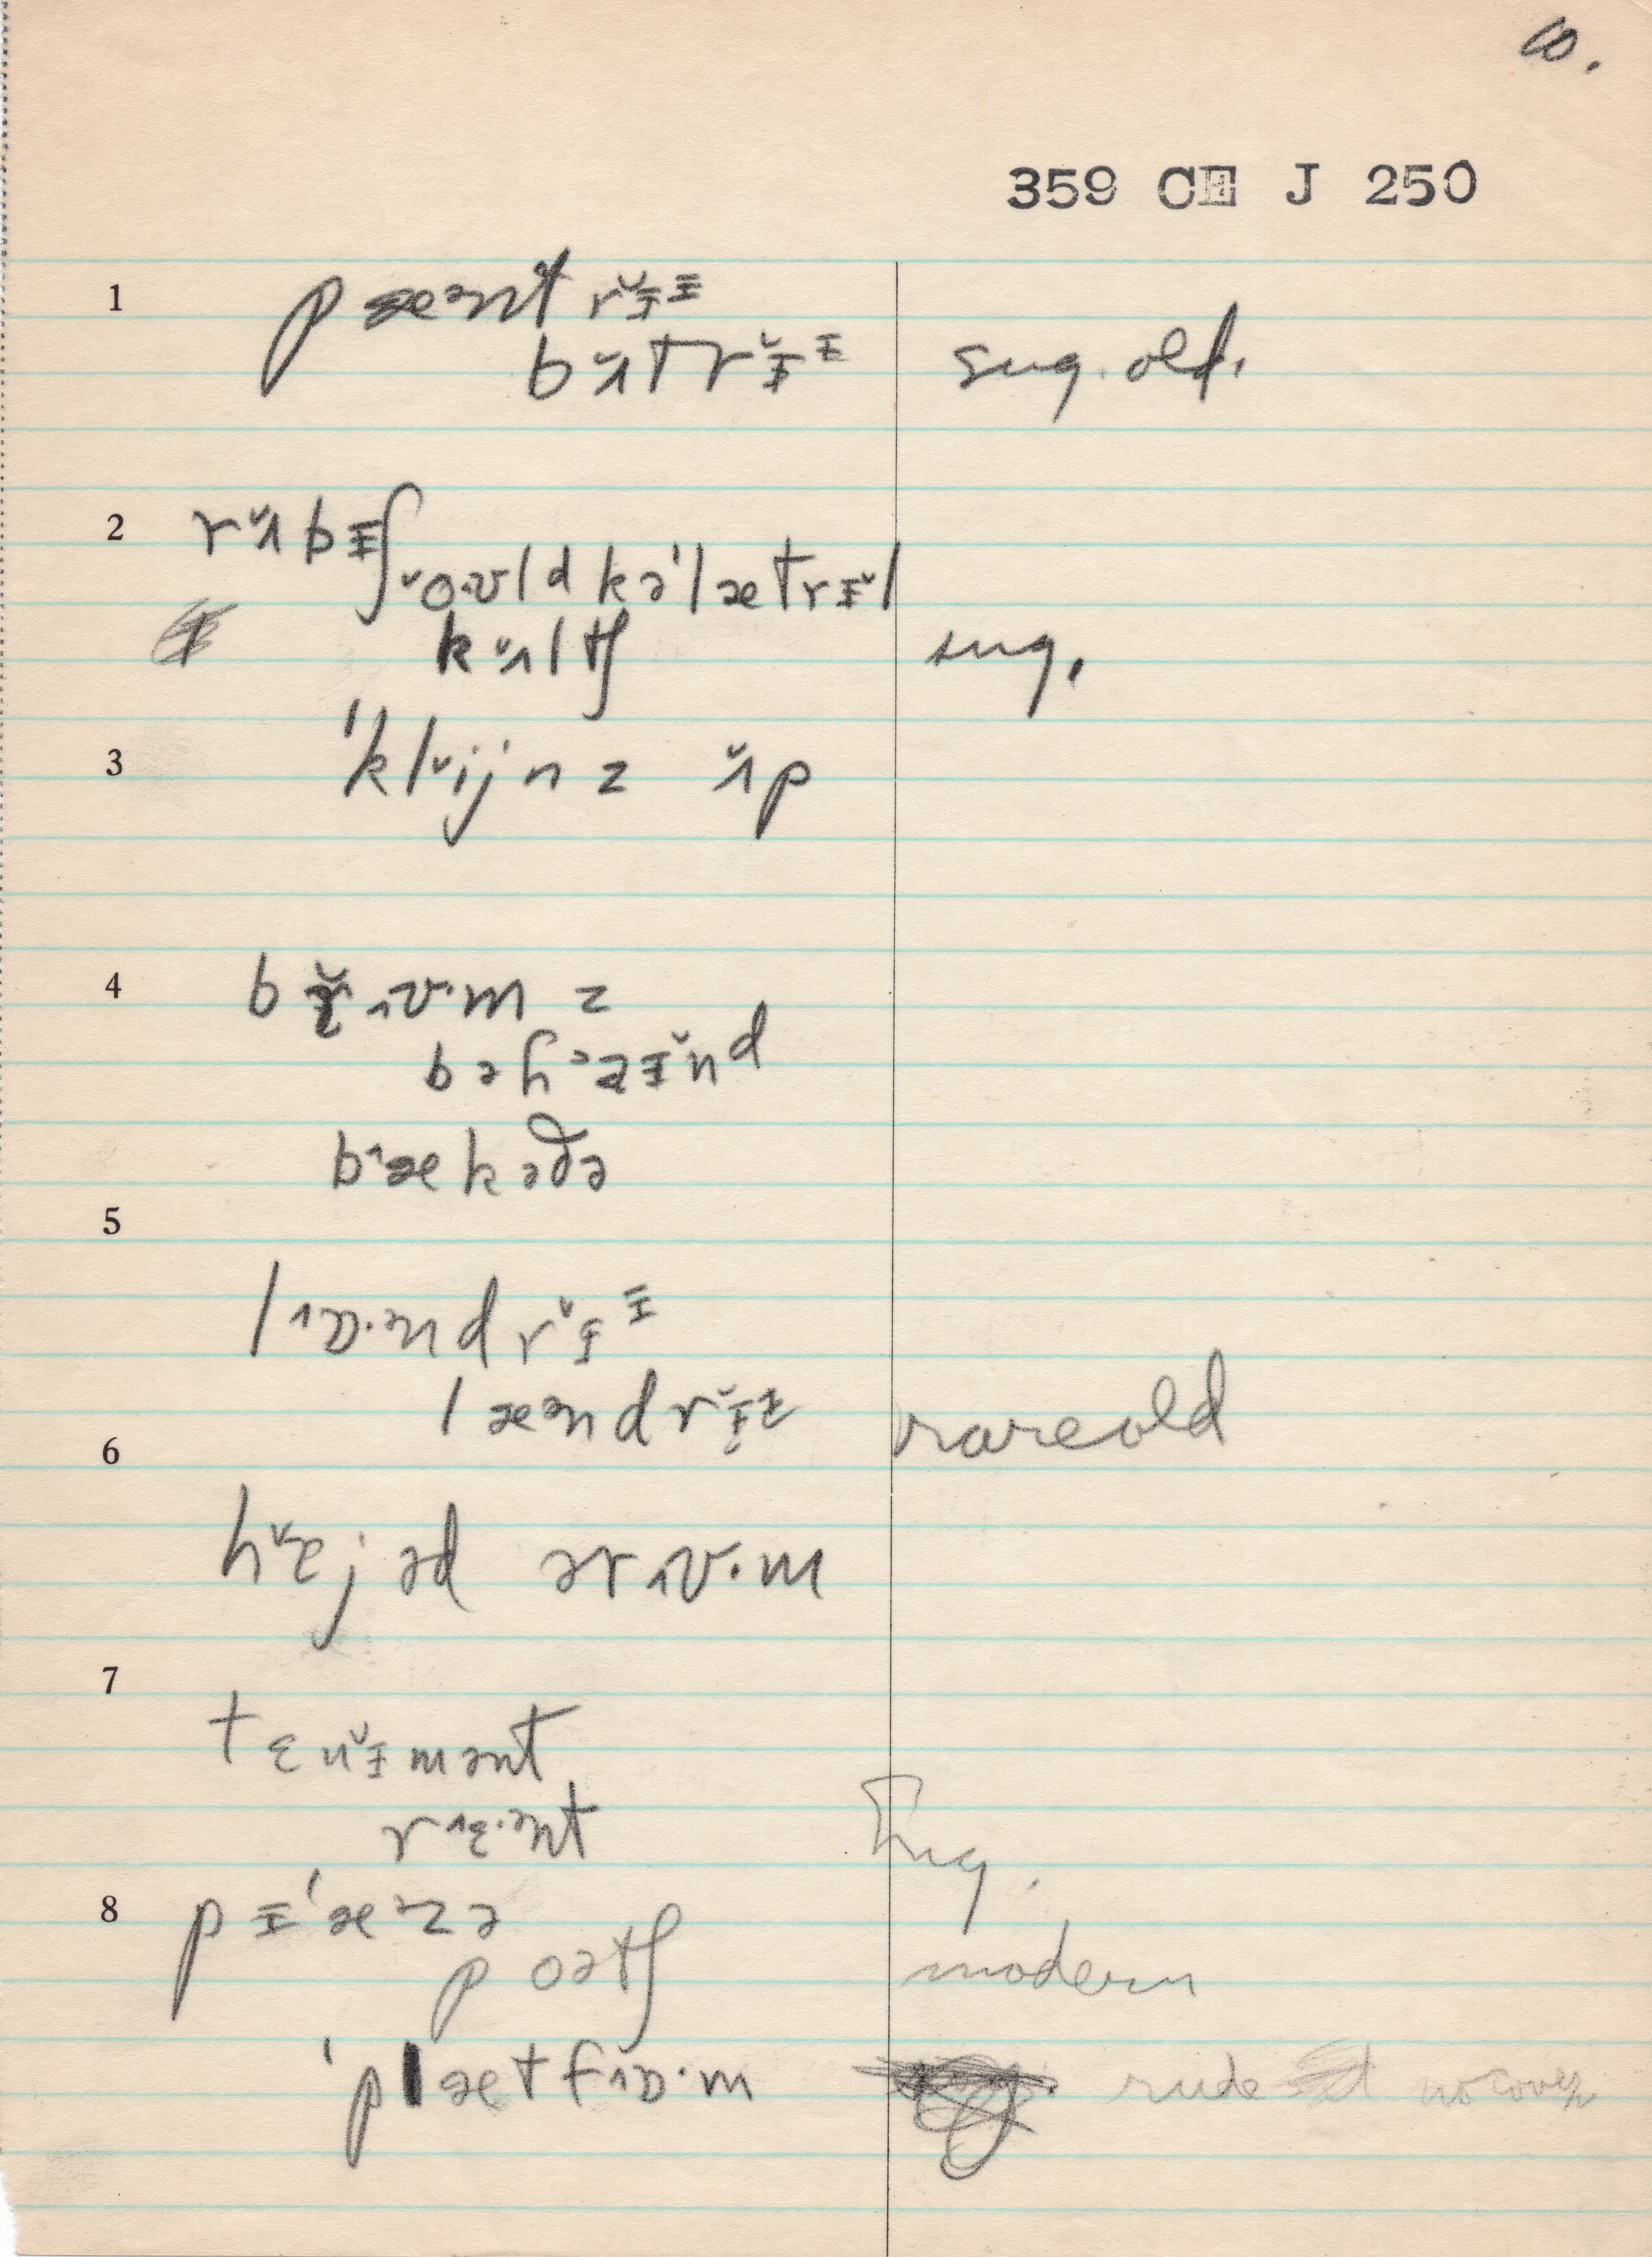 10.
359 CE J 250
1 pæənt rɪ̵̆ɪ̵
bʌ̆trɪ̵̆ɪ̵ sug. old.
2 rʌ̆bɪ̵ʃ
ŏ·ʊld kə'lætrɪ̵̆l
kʌ̆ltʃ sug.
3 'klĭjnz ʌ̆p
4 brʌʊ·mz
bəhəzɪ̵̆nd
b^ækədə
5
l^ɒ·ənd rɪ̵̆ɪ̵
læəndrɪ̵̆ɪ̵ rare old
6
hɛ̆jəd ər^ʊ·m
7
tɛnɪ̵̆mənt
r^ɛ·ənt sug.
8 pɪ̵'æᵊzə
poətʃ modern
'plætf^ɒ·m rude no cover